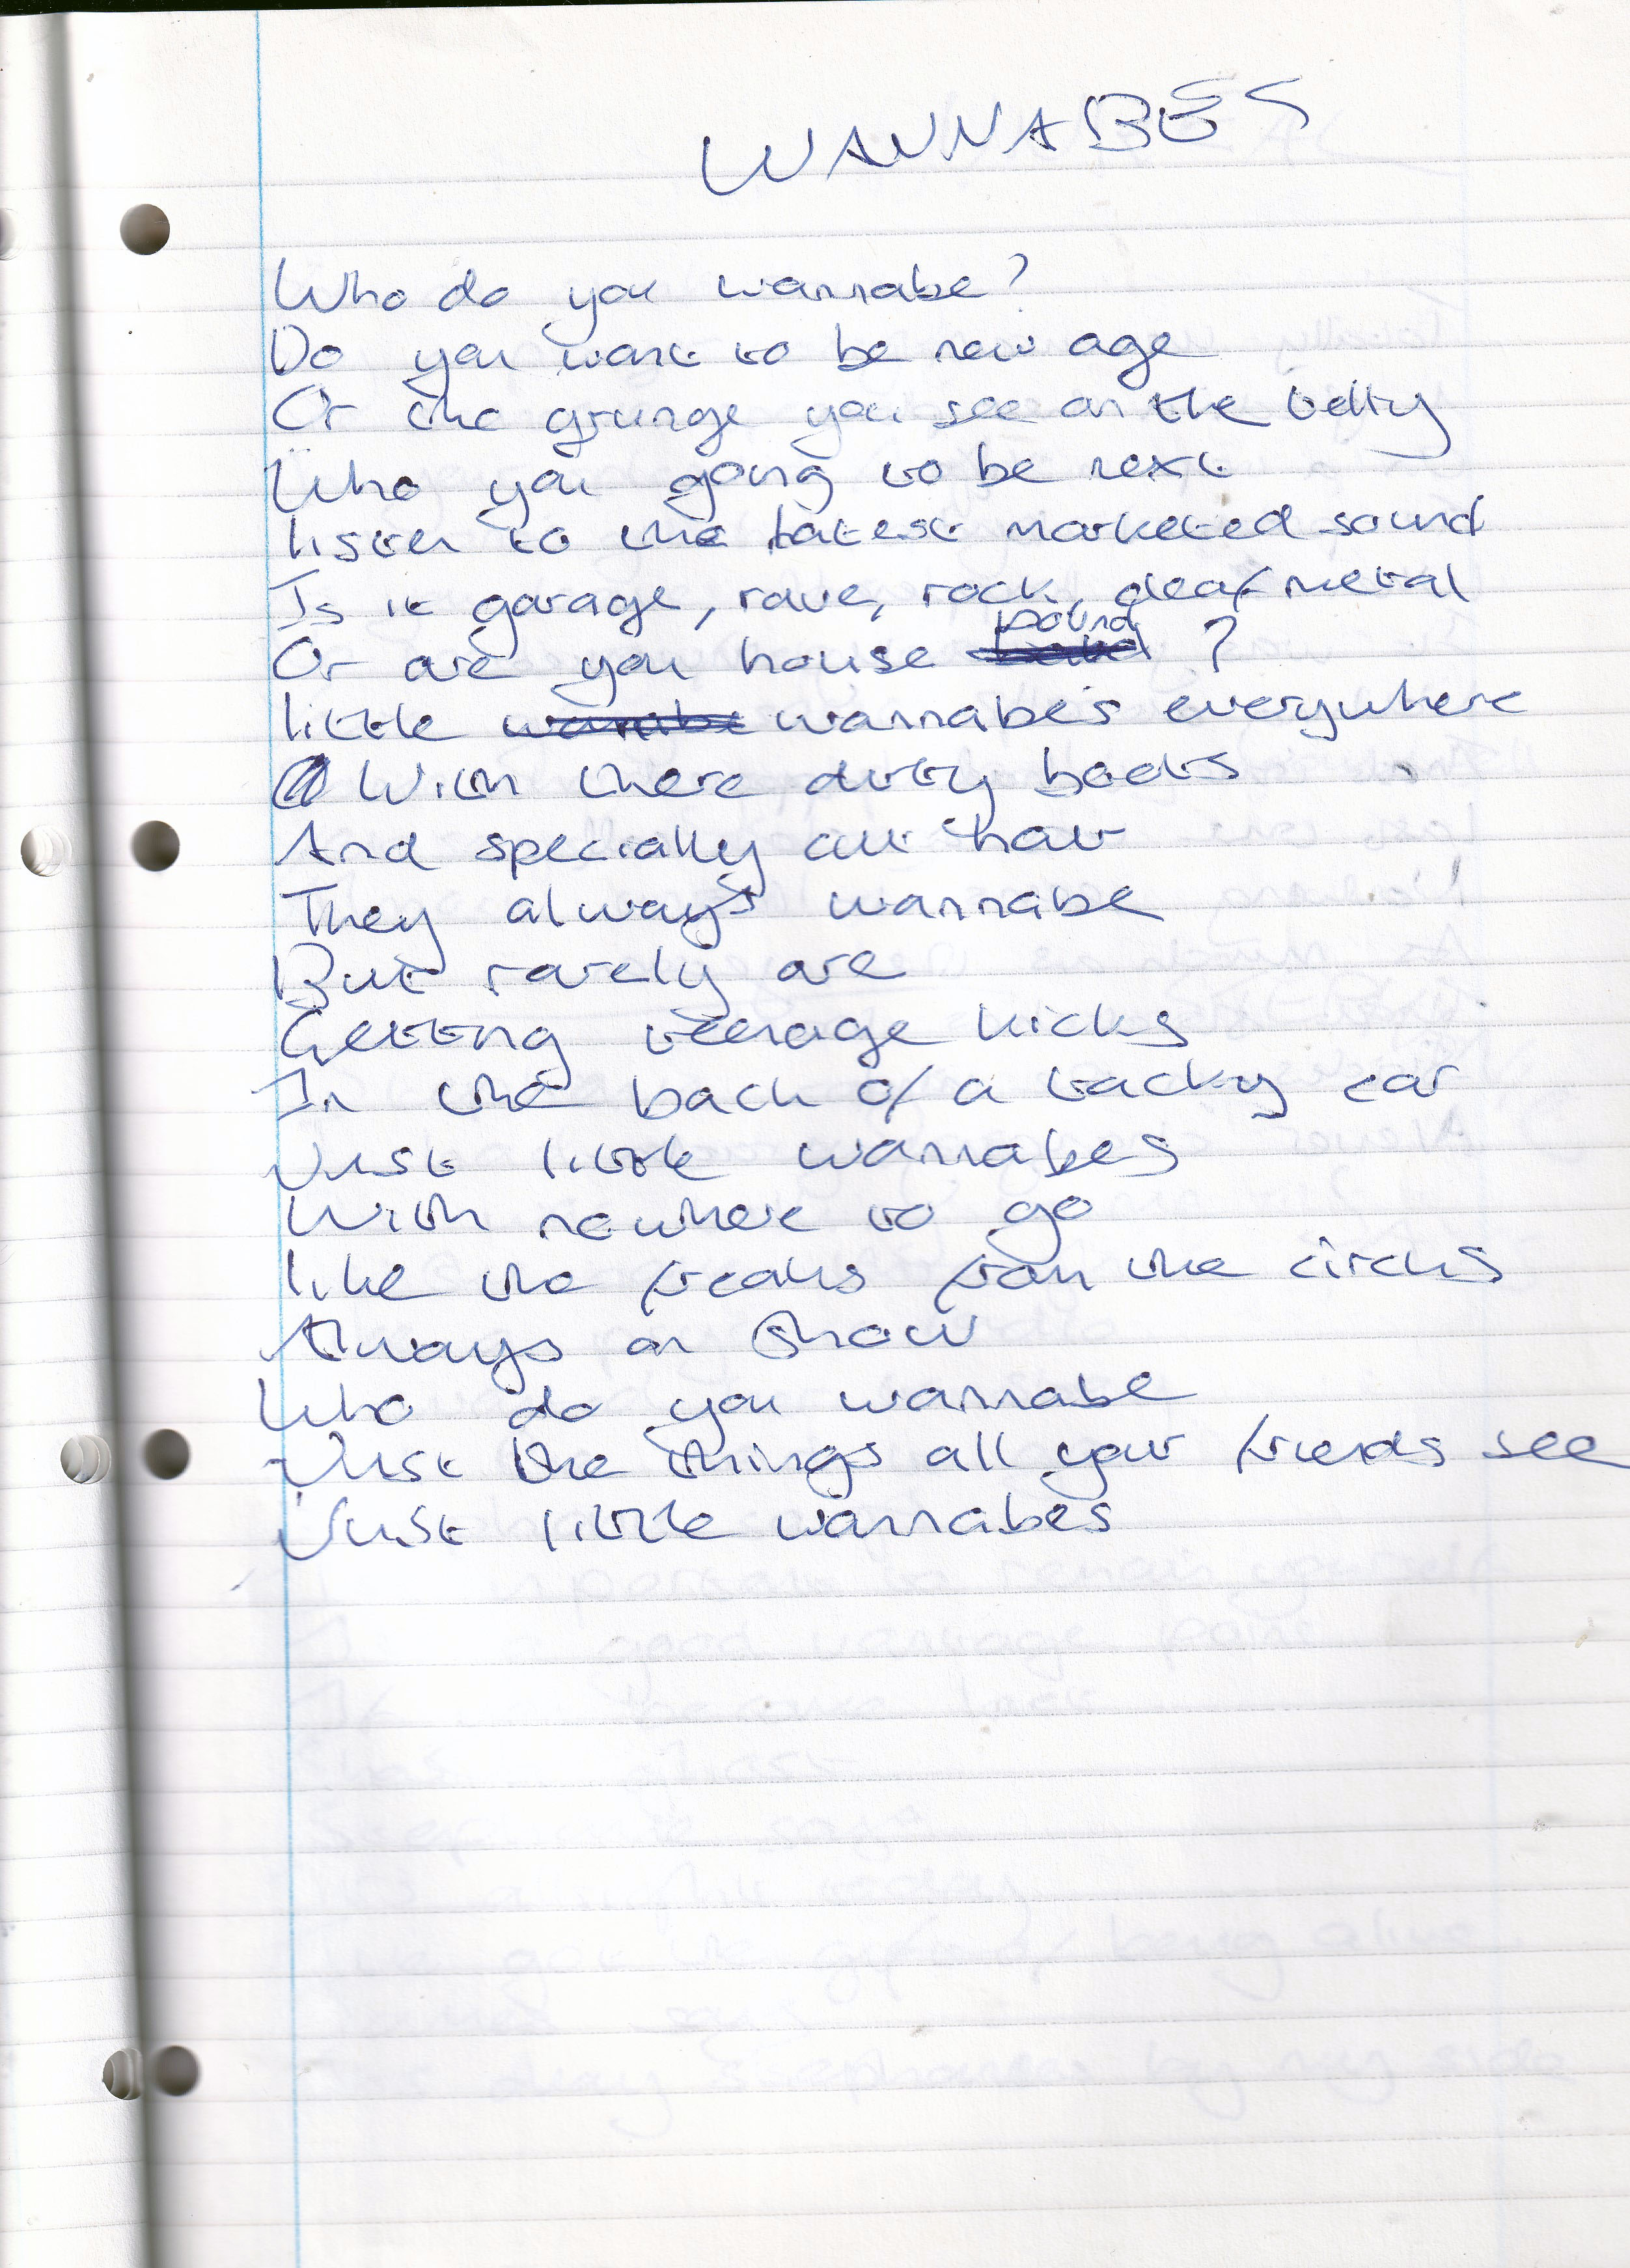 WANNABES
Who do you wannabe?
Do you want to be new age
Or the grunge you see on the telly
Who you going to be next
listen to the latest marketed sound
Is it garage, rave, rock, deaf metal
Or are you house bound ?
little wannabe wannabe's everywhere
With there dirty boots
And specially cut hair
They always wannabe
But rarely are
Getting teenage kicks
In the back of a tacky car
Just little wannabes
With nowhere to go
like the freaks from the circus
Always on show
Who do you wannabe
Just the things all your friends see
Just little wannabes